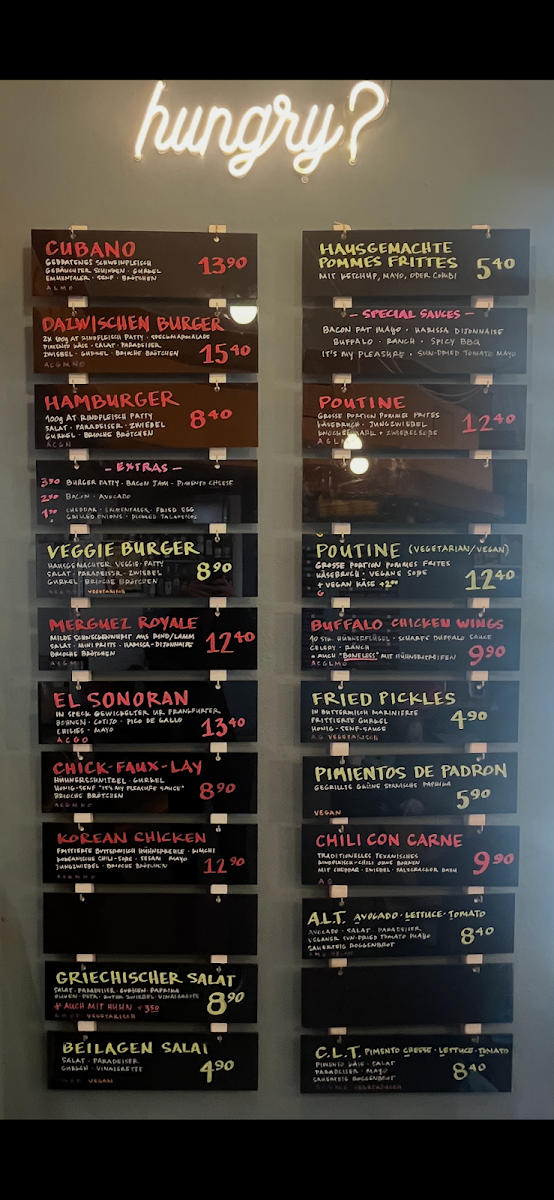 hungry?
CUBANO
GEBRATENES SCHWEINEFLEISCH
GERÄUCHTER SCHINKEN · GURKEL
EMMENTALER · SENF · BRÖTCHEN
13⁹⁰
A L M O
DAZWISCHEN BURGER
2X 100g AT RINDFLEISCH PATTY · SPECKMARMALADE
PIMENTO KÄSE · SALAT · PARADEISER
ZWIEBEL · GURKEL · BRIOCHE BRÖTCHEN
15⁴⁰
A C G M N O
HAMBURGER
100g AT RINDFLEISCH PATTY
SALAT · PARADEISER · ZWIEBEL
GURKEL · BRIOCHE BRÖTCHEN
8⁴⁰
A C G N
- EXTRAS -
3⁵⁰ BURGER PATTY · BACON JAM · PIMENTO CHEESE
2⁵⁰ BACON · AVOCADO
CHEDDAR · EMMENTALER · FRIED EGG
GRILLED ONIONS · PICKLED JALAPENOS
VEGGIE BURGER
HAUSGEMACHTER VEGGIE-PATTY
SALAT · PARADEISER · ZWIEBEL
GURKEL · BRIOCHE BRÖTCHEN
8⁹⁰
VEGETARISCH
MERGUEZ ROYALE
MILDE SCHNECKENWURST AUS RIND/LAMM
SALAT · MINI FRITES · HARISSA · DIJONNAISE
BRIOCHE BRÖTCHEN
12⁴⁰
EL SONORAN
IN SPECK GEWICKELTER UR. FRANKFURTER
BOHNEN · COTIJO · PICO DE GALLO
CHILIES · MAYO
13⁴⁰
A C G O
CHICK-FAUX-LAY
HÜHNERSCHNITZEL · GURKEL
HONIG-SENF "IT'S MY PLEASURE SAUCE"
BRIOCHE BRÖTCHEN
8⁹⁰
KOREAN CHICKEN
FRITTIERTE BUTTERMILCH HÜHNERKEULE · KIMCHI
KOREANISCHE CHILI-SOßE · SESAM MAYO
JUNGZWIEBEL · BRIOCHE BRÖTCHEN
12⁹⁰
GRIECHISCHER SALAT
SALAT · PARADEISER · GURKEN · PAPRIKA
OLIVEN · FETA · ROTER ZWIEBEL · VINAIGRETTE
+ AUCH MIT HUHN + 3⁵⁰
8⁹⁰
VEGETARISCH
BEILAGEN SALAT
SALAT · PARADEISER
GURKEN · VINAIGRETTE
4⁹⁰
VEGAN
HAUSGEMACHTE
POMMES FRITTES
MIT KETCHUP, MAYO, ODER COMBI
5⁴⁰
- SPECIAL SAUCES -
BACON FAT MAYO · HARISSA DIJONNAISE
BUFFALO · RANCH · SPICY BBQ
IT'S MY PLEASURE · SUN-DRIED TOMATO MAYO
POUTINE
GROSSE PORTION POMMES FRITES
KÄSEBRUCH · JUNGZWIEBEL
+ ZWIEBELSOßE
12⁴⁰
A G L
POUTINE (VEGETARIAN/VEGAN)
GROSSE PORTION POMMES FRITES
KÄSEBRUCH · VEGANE SOßE
+ VEGAN KÄSE +2⁰⁰
12⁴⁰
G
BUFFALO CHICKEN WINGS
10 STK. HÜHNERFLÜGEL · SCHARFE BUFFALO SAUCE
CELERY · RANCH
+ AUCH "BONELESS" MIT HÜHNERSTREIFEN
9⁹⁰
A C G L M O
FRIED PICKLES
IN BUTTERMILCH MARINIERTE
FRITTIERTE GURKEL
HONIG-SENF-SAUCE
4⁹⁰
VEGETARISCH
PIMIENTOS DE PADRON
GEGRILLTE GRÜNE SPANISCHE PAPRIKA
5⁹⁰
VEGAN
CHILI CON CARNE
TRADITIONELLES TEXANISCHES
RINDFLEISCH-CHILI OHNE BOHNEN
MIT CHEDDAR · ZWIEBEL · SALZCRACKER DAZU
9⁹⁰
A G
A.L.T. AVOCADO · LETTUCE · TOMATO
AVOCADO · SALAT · PARADEISER
VEGANER SUN-DRIED TOMATO MAYO
SAUERTEIG ROGGENBROT
8⁴⁰
C.L.T. PIMENTO CHEESE · LETTUCE · TOMATO
PIMENTO KÄSE · SALAT
PARADEISER · MAYO
SAUERTEIG ROGGENBROT
8⁴⁰